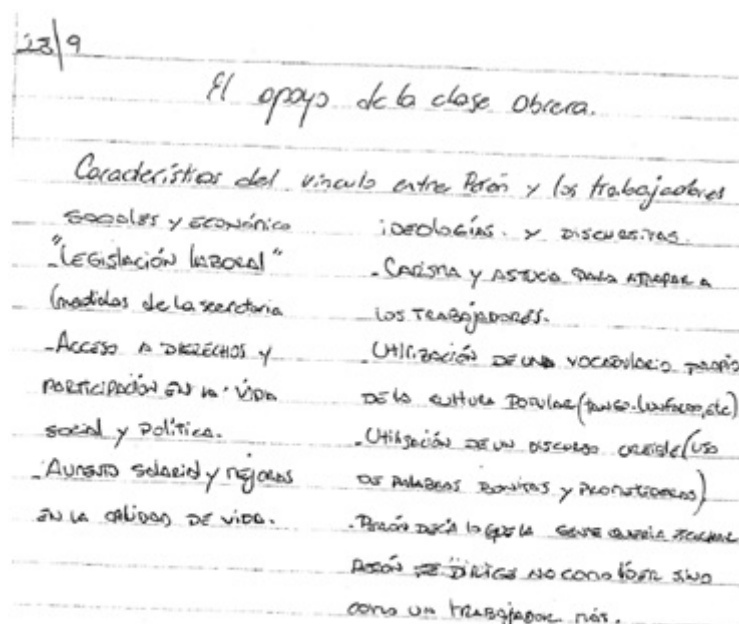 23/9
El apoyo de la clase obrera.
Características del vínculo entre Perón y los trabajadores
sociales y económico
"LEGISLACIÓN LABORAL"
(medidas de la secretaria
- ACCESO A DERECHOS Y
PARTICIPACIÓN EN LA VIDA
SOCIAL y POLÍTICA.
- AUMENTO SALARIAL y MEJORAS
EN LA CALIDAD DE VIDA.
IDEOLOGÍAS. Y DISCURSIVAS.
- CARISMA Y ASTUCIA PARA ATRAPAR A
LOS TRABAJADORES.
- UTILIZACIÓN DE UN VOCABULARIO PROPIO
DE LA CULTURA POPULAR (TANGO. LUNFARDO, etc)
- UTILIZACIÓN DE UN DISCURSO CREIBLE (USO
DE PALABRAS BONITAS Y PROMETEDORAS)
- PERÓN DECÍA LO QUE LA GENTE QUERÍA ESCUCHAR
PERÓN SE DIRIGE NO COMO LÍDER SINO
COMO UN TRABAJADOR MÁS.